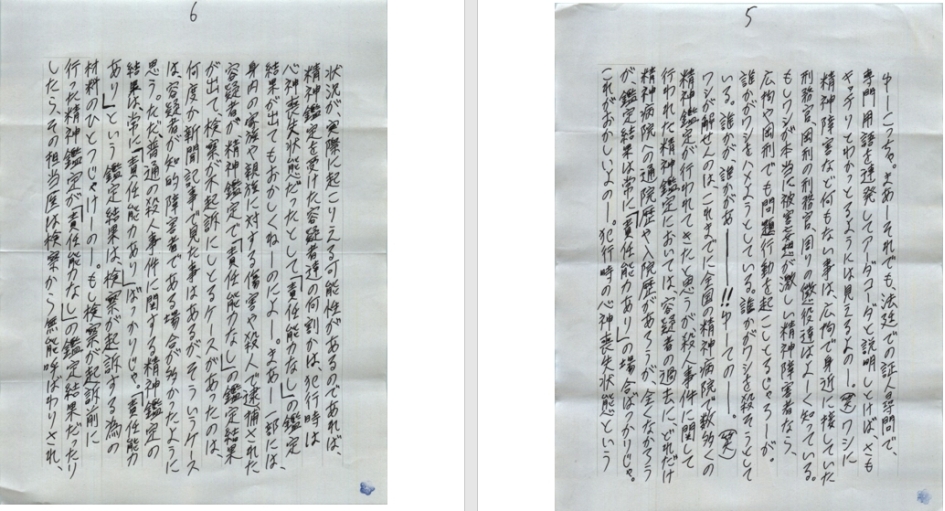 5
ゆーこっちゃ。まあーそれでも、法廷での証人尋問で、
専門用語を連発してアーダコーダと説明しとけば、さも
キッチリとわかっとるようには見えるよのー。(笑)ワシに
精神障害など何もない事は、広拘で身近に接していた
刑務官、岡刑の刑務官、周りの懲役達はよーく知っている。
もしワシが本当に被害妄想が激しい精神障害者なら、
広拘や岡刑でも問題行動を起こしとるじゃろーが。
誰かがワシをハメようとしている。誰かがワシを殺そうとして
いる。誰かが、誰かがあーーー!!ゆーてのー。(笑)
ワシが解せんのは、これまでに全国の精神病院で数多くの
精神鑑定が行われてきたと思うが、殺人事件に関して
行われた精神鑑定においては、容疑者の過去に、どれだけ
精神病院への通院歴や入院歴があろうが、全くなかろう
が、鑑定結果は常に「責任能力あり」の場合ばっかりじゃ。
これがおかしいよのー。犯行時の心神喪失状態という
6
状況が実際に起こりえる可能性があるのであれば、
精神鑑定を受けた容疑者達の何割かは、犯行時は
心神喪失状態だったとして、「責任能力なし」の鑑定
結果が出てもおかしくねーのによー。まあー一部には、
身内の家族や親族に対する傷害や殺人で逮捕された
容疑者が、精神鑑定で「責任能力なし」の鑑定結果
が出て、検察が不起訴にしとるケースがあったのは、
何度か新聞記事で見た事はあるが、そういうケース
は、容疑者が知的障害者である場合が多かったように
思う。ただ、普通の殺人事件に関する精神鑑定の
結果は、常に「責任能力あり」ばっかりじゃ。「責任能力
あり」という鑑定結果は、検察が起訴する為の
材料のひとつじゃけーのー。もし検察が起訴前に
行った精神鑑定が「責任能力なし」の鑑定結果だったり
したら、その担当医は検察から無能呼ばわりされ、